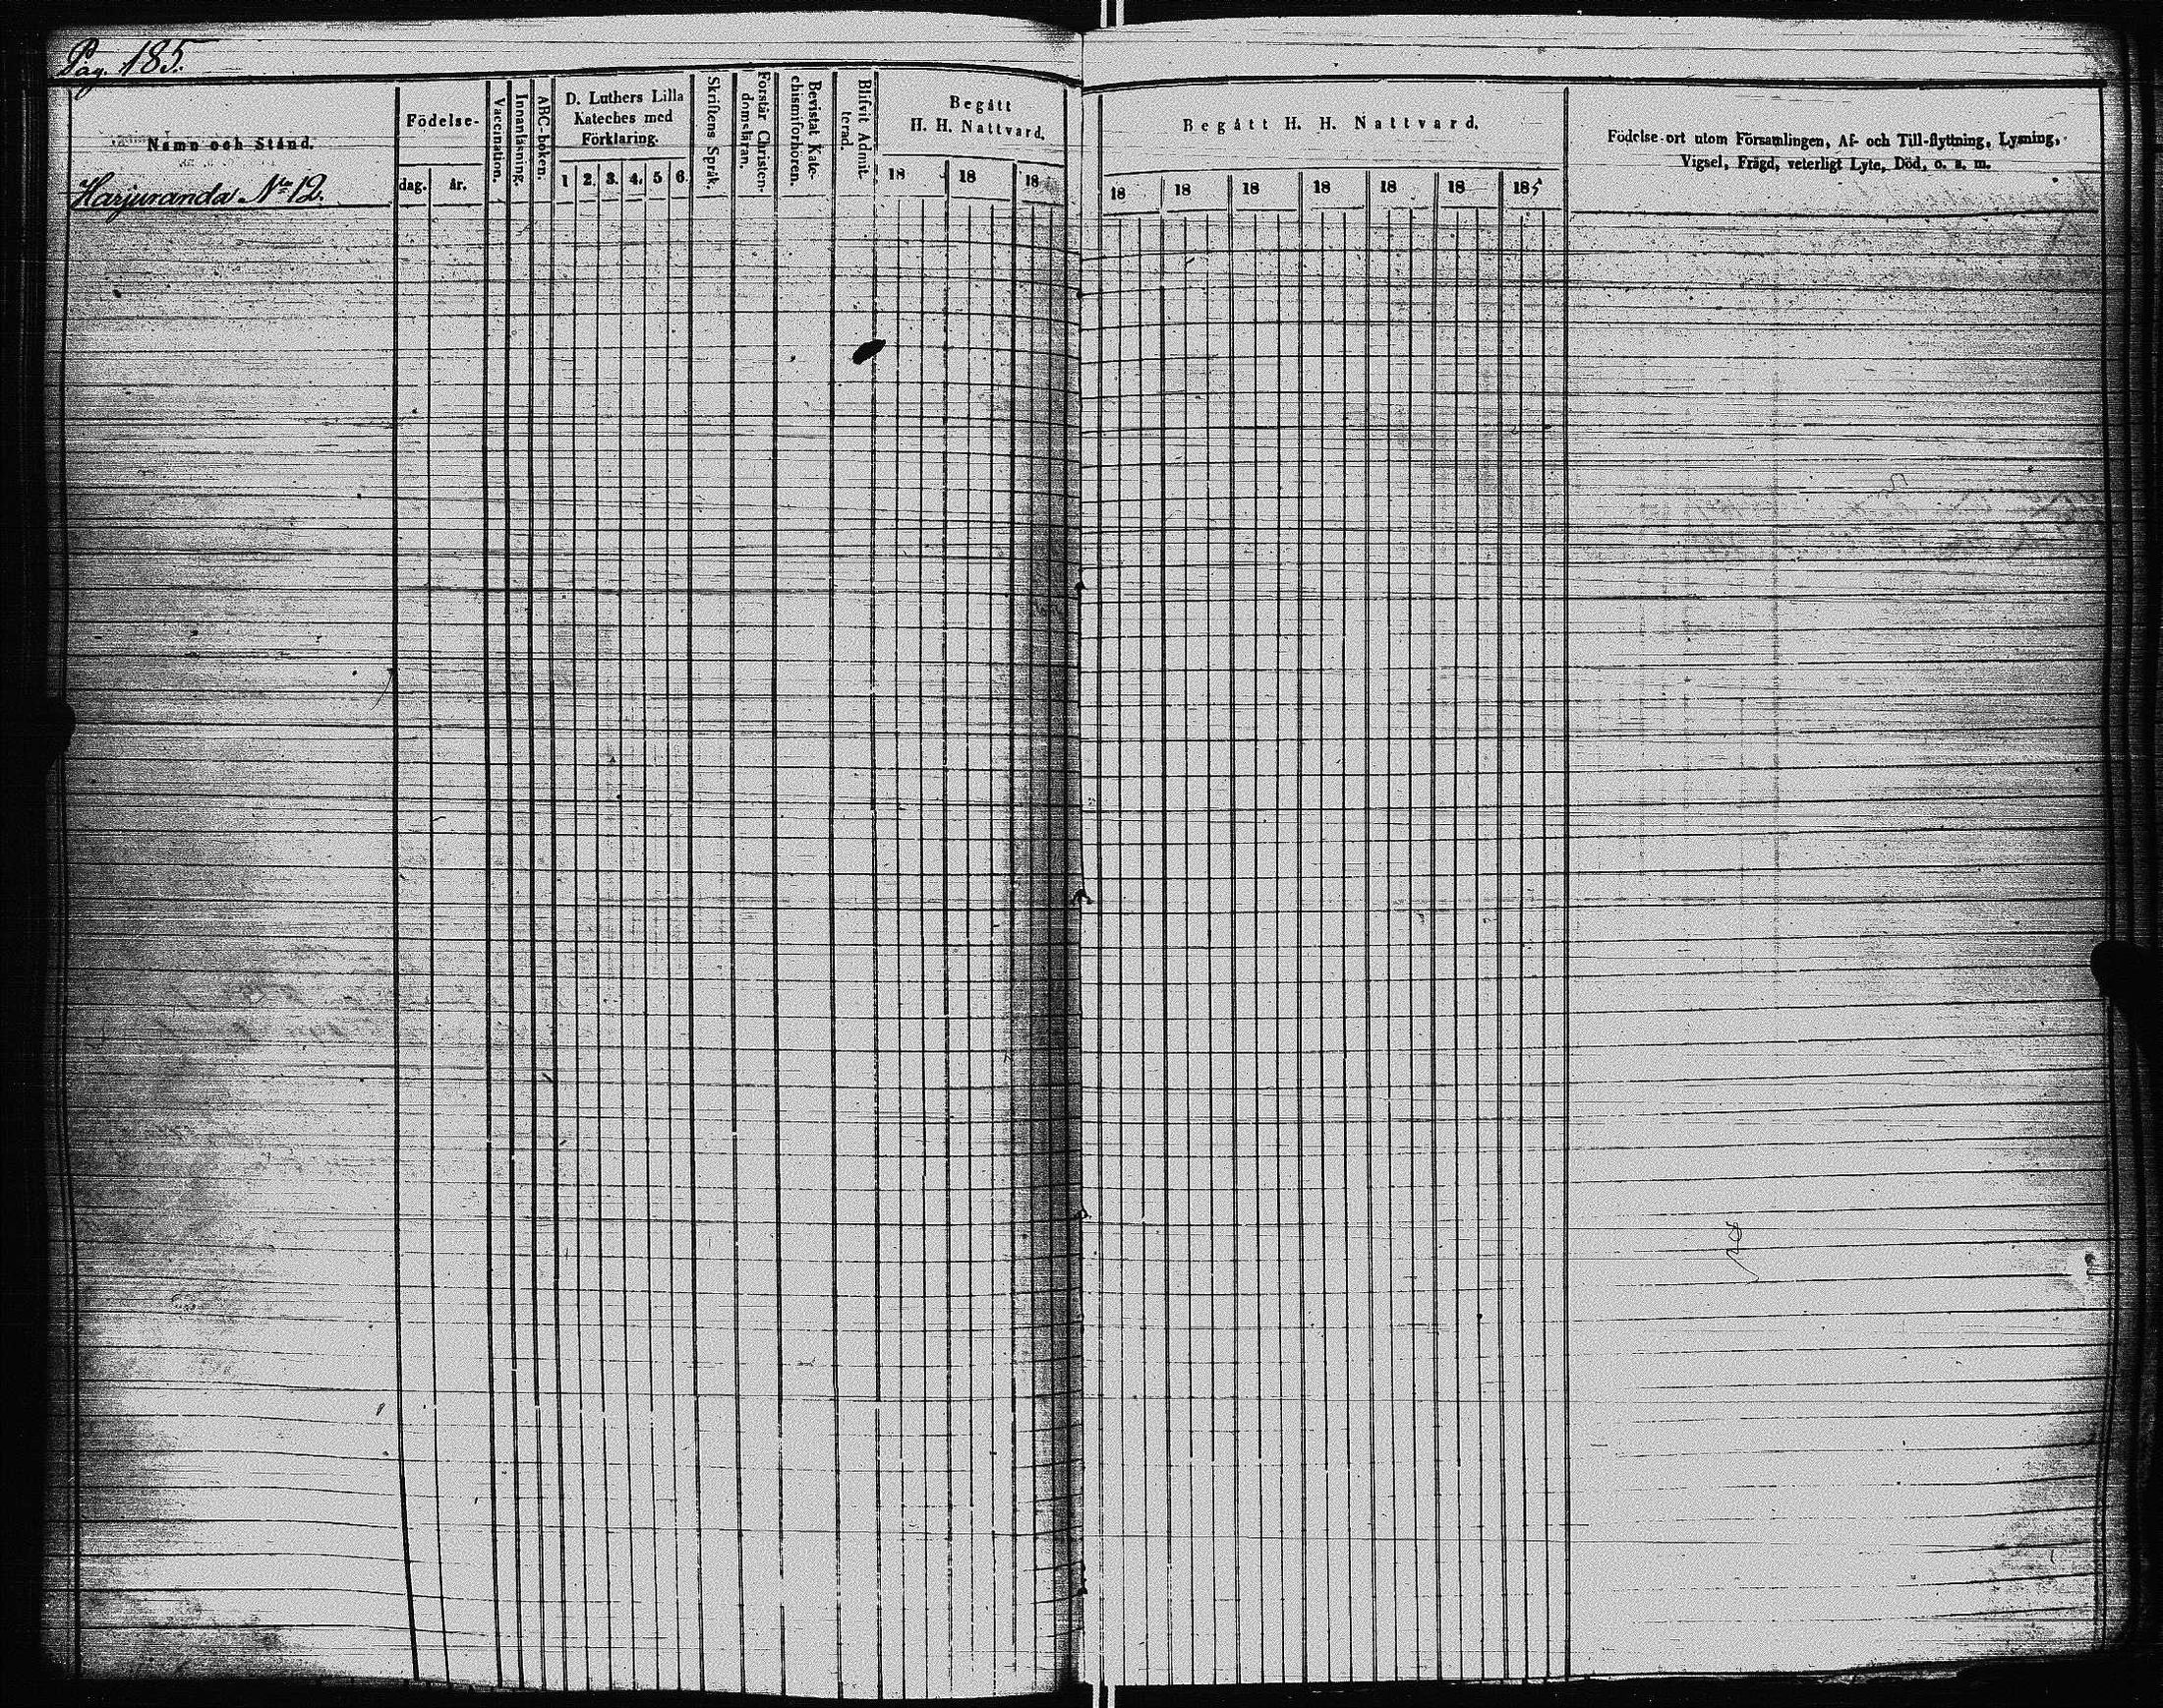 Pag. 185.
Namn och Stånd.
Harjuranda No 12.
Födelse-
dag. år.
Vaccination.
Innanläsning.
ABC-boken.
D. Luthers Lilla
Kateches med
Förklaring.
1 2. 3. 4. 5 6
Skriftens Språk.
Förstår Christen-
domsläran.
Bevistat Kate-
chismiförhören.
Blifvit Admit-
terad.
Begått
H. H. Nattvard.
18 18 18
Begått H. H. Nattvard.
18 18 18 18 18 18 185
Födelse-ort utom Församlingen, Af- och Till-flyttning, Lysning,
Vigsel, Frägd, veterligt Lyte, Död, o. s. m.